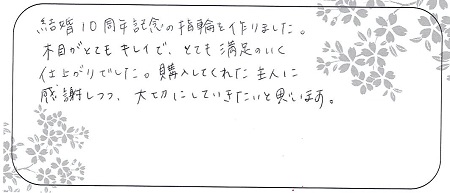 結婚10周年記念の指輪を作りました。
木目がとてもキレイで、とても満足のいく
仕上がりでした。購入してくれた主人に
感謝しつつ、大切にしていきたいと思います。